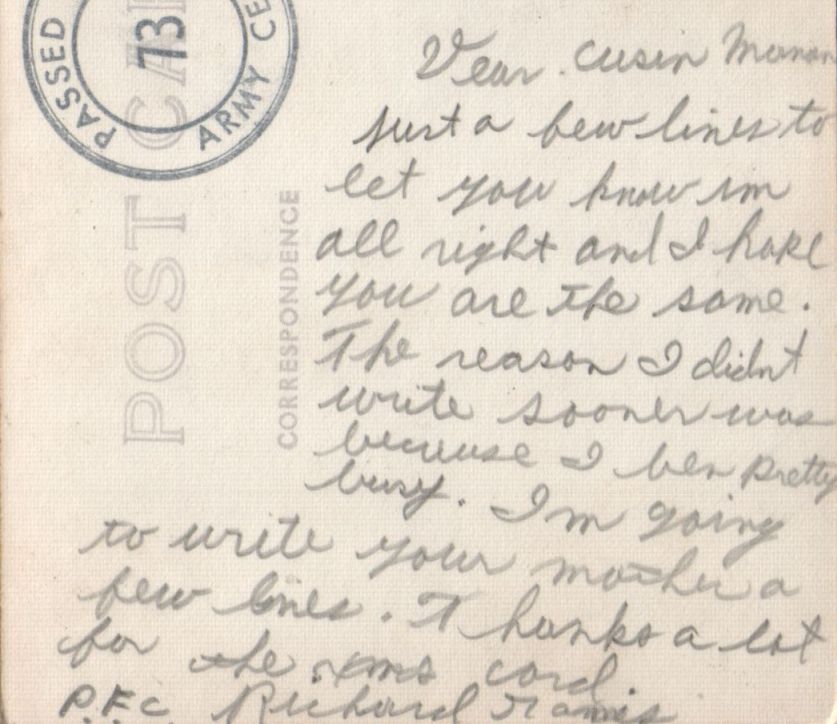 PASSED
73
ARMY CE
POST CA
CORRESPONDENCE
Dear. Cusen
Just a few lines to
let you know im
all right and I hope
you are the same.
The reason I didnt
write sooner was
becuuse I ben pretty
busy. I'm going
to write your mother a
few lines. Thanks a lot
for the xmas card.
P.F.C. Richard